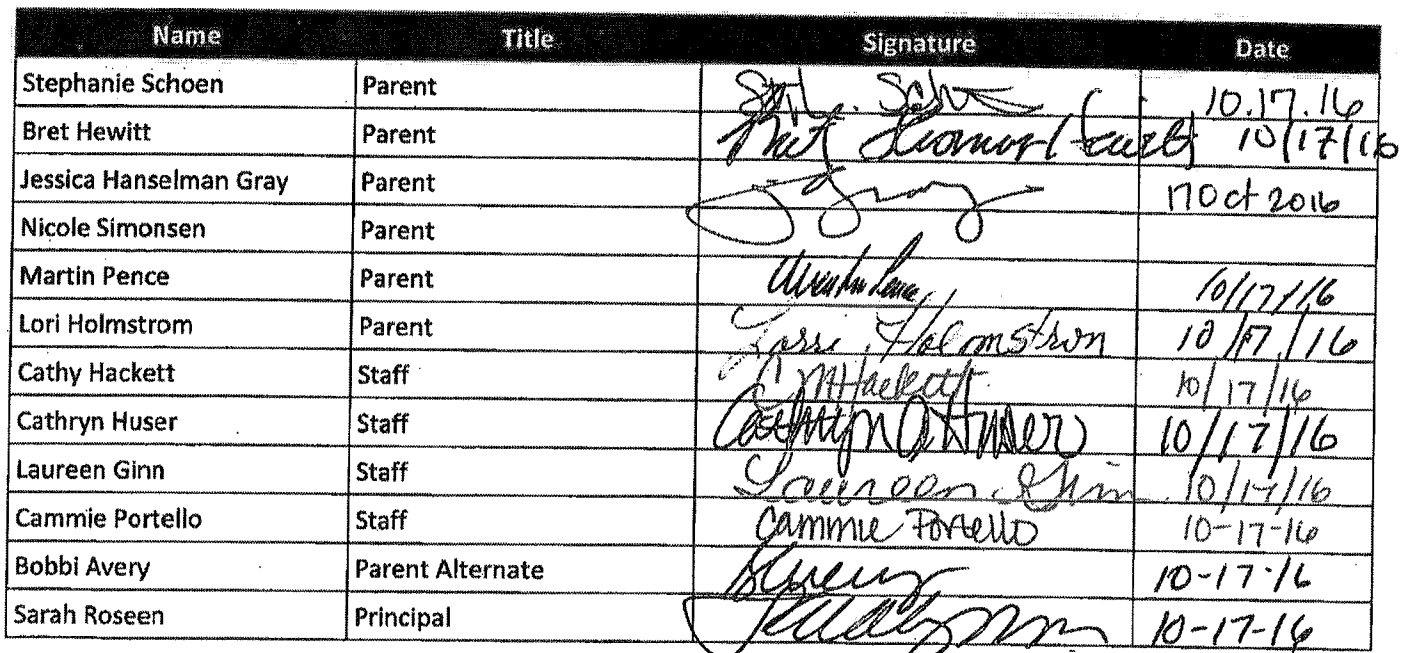 Name Title Signature Date
Stephanie Schoen Parent 10.17.16
Bret Hewitt Parent 10/17/16
Jessica Hanselman Gray Parent JGray 17 Oct 2016
Nicole Simonsen Parent
Martin Pence Parent Martin Pence 10/17/16
Lori Holmstrom Parent Lorri Holmstrom 10/17/16
Cathy Hackett Staff C M Hackett 10/17/16
Cathryn Huser Staff Cathryn A Huser 10/17/16
Laureen Ginn Staff Laureen Ginn 10/17/16
Cammie Portello Staff Cammie Portello 10-17-16
Bobbi Avery Parent Alternate BAvery 10-17-16
Sarah Roseen Principal 10-17-16